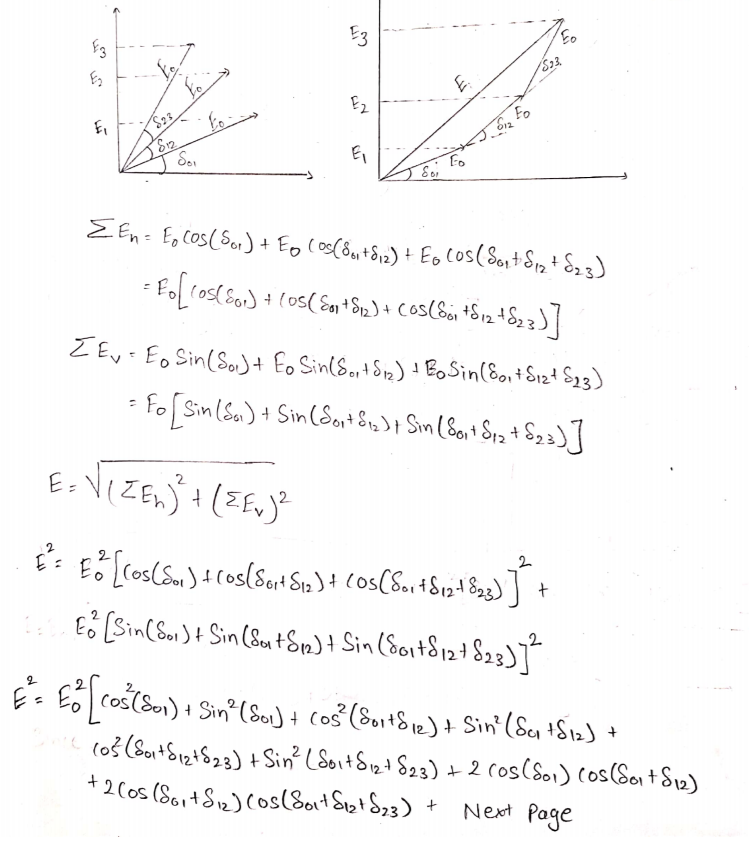 E3
E2
E1
E0
E0
E0
δ23
δ12
δ01
E3
E2
E1
E
E0
δ23
E0
δ12
E0
δ01
ΣEh = E0 cos(δ01) + E0 cos(δ01+δ12) + E0 cos(δ01+δ12+δ23)
= E0[cos(δ01) + cos(δ01+δ12) + cos(δ01+δ12+δ23)]
ΣEv = E0 Sin(δ01) + E0 Sin(δ01+δ12) + E0 Sin(δ01+δ12+δ23)
= E0[Sin(δ01) + Sin(δ01+δ12) + Sin(δ01+δ12+δ23)]
E = √(ΣEh)² + (ΣEv)²
E² = E0²[cos(δ01) + cos(δ01+δ12) + cos(δ01+δ12+δ23)]² +
E0²[Sin(δ01) + Sin(δ01+δ12) + Sin(δ01+δ12+δ23)]²
E² = E0²[cos²(δ01) + Sin²(δ01) + cos²(δ01+δ12) + Sin²(δ01+δ12) +
cos²(δ01+δ12+δ23) + Sin²(δ01+δ12+δ23) + 2 cos(δ01) cos(δ01+δ12)
+ 2 cos(δ01+δ12) cos(δ01+δ12+δ23) + Next Page